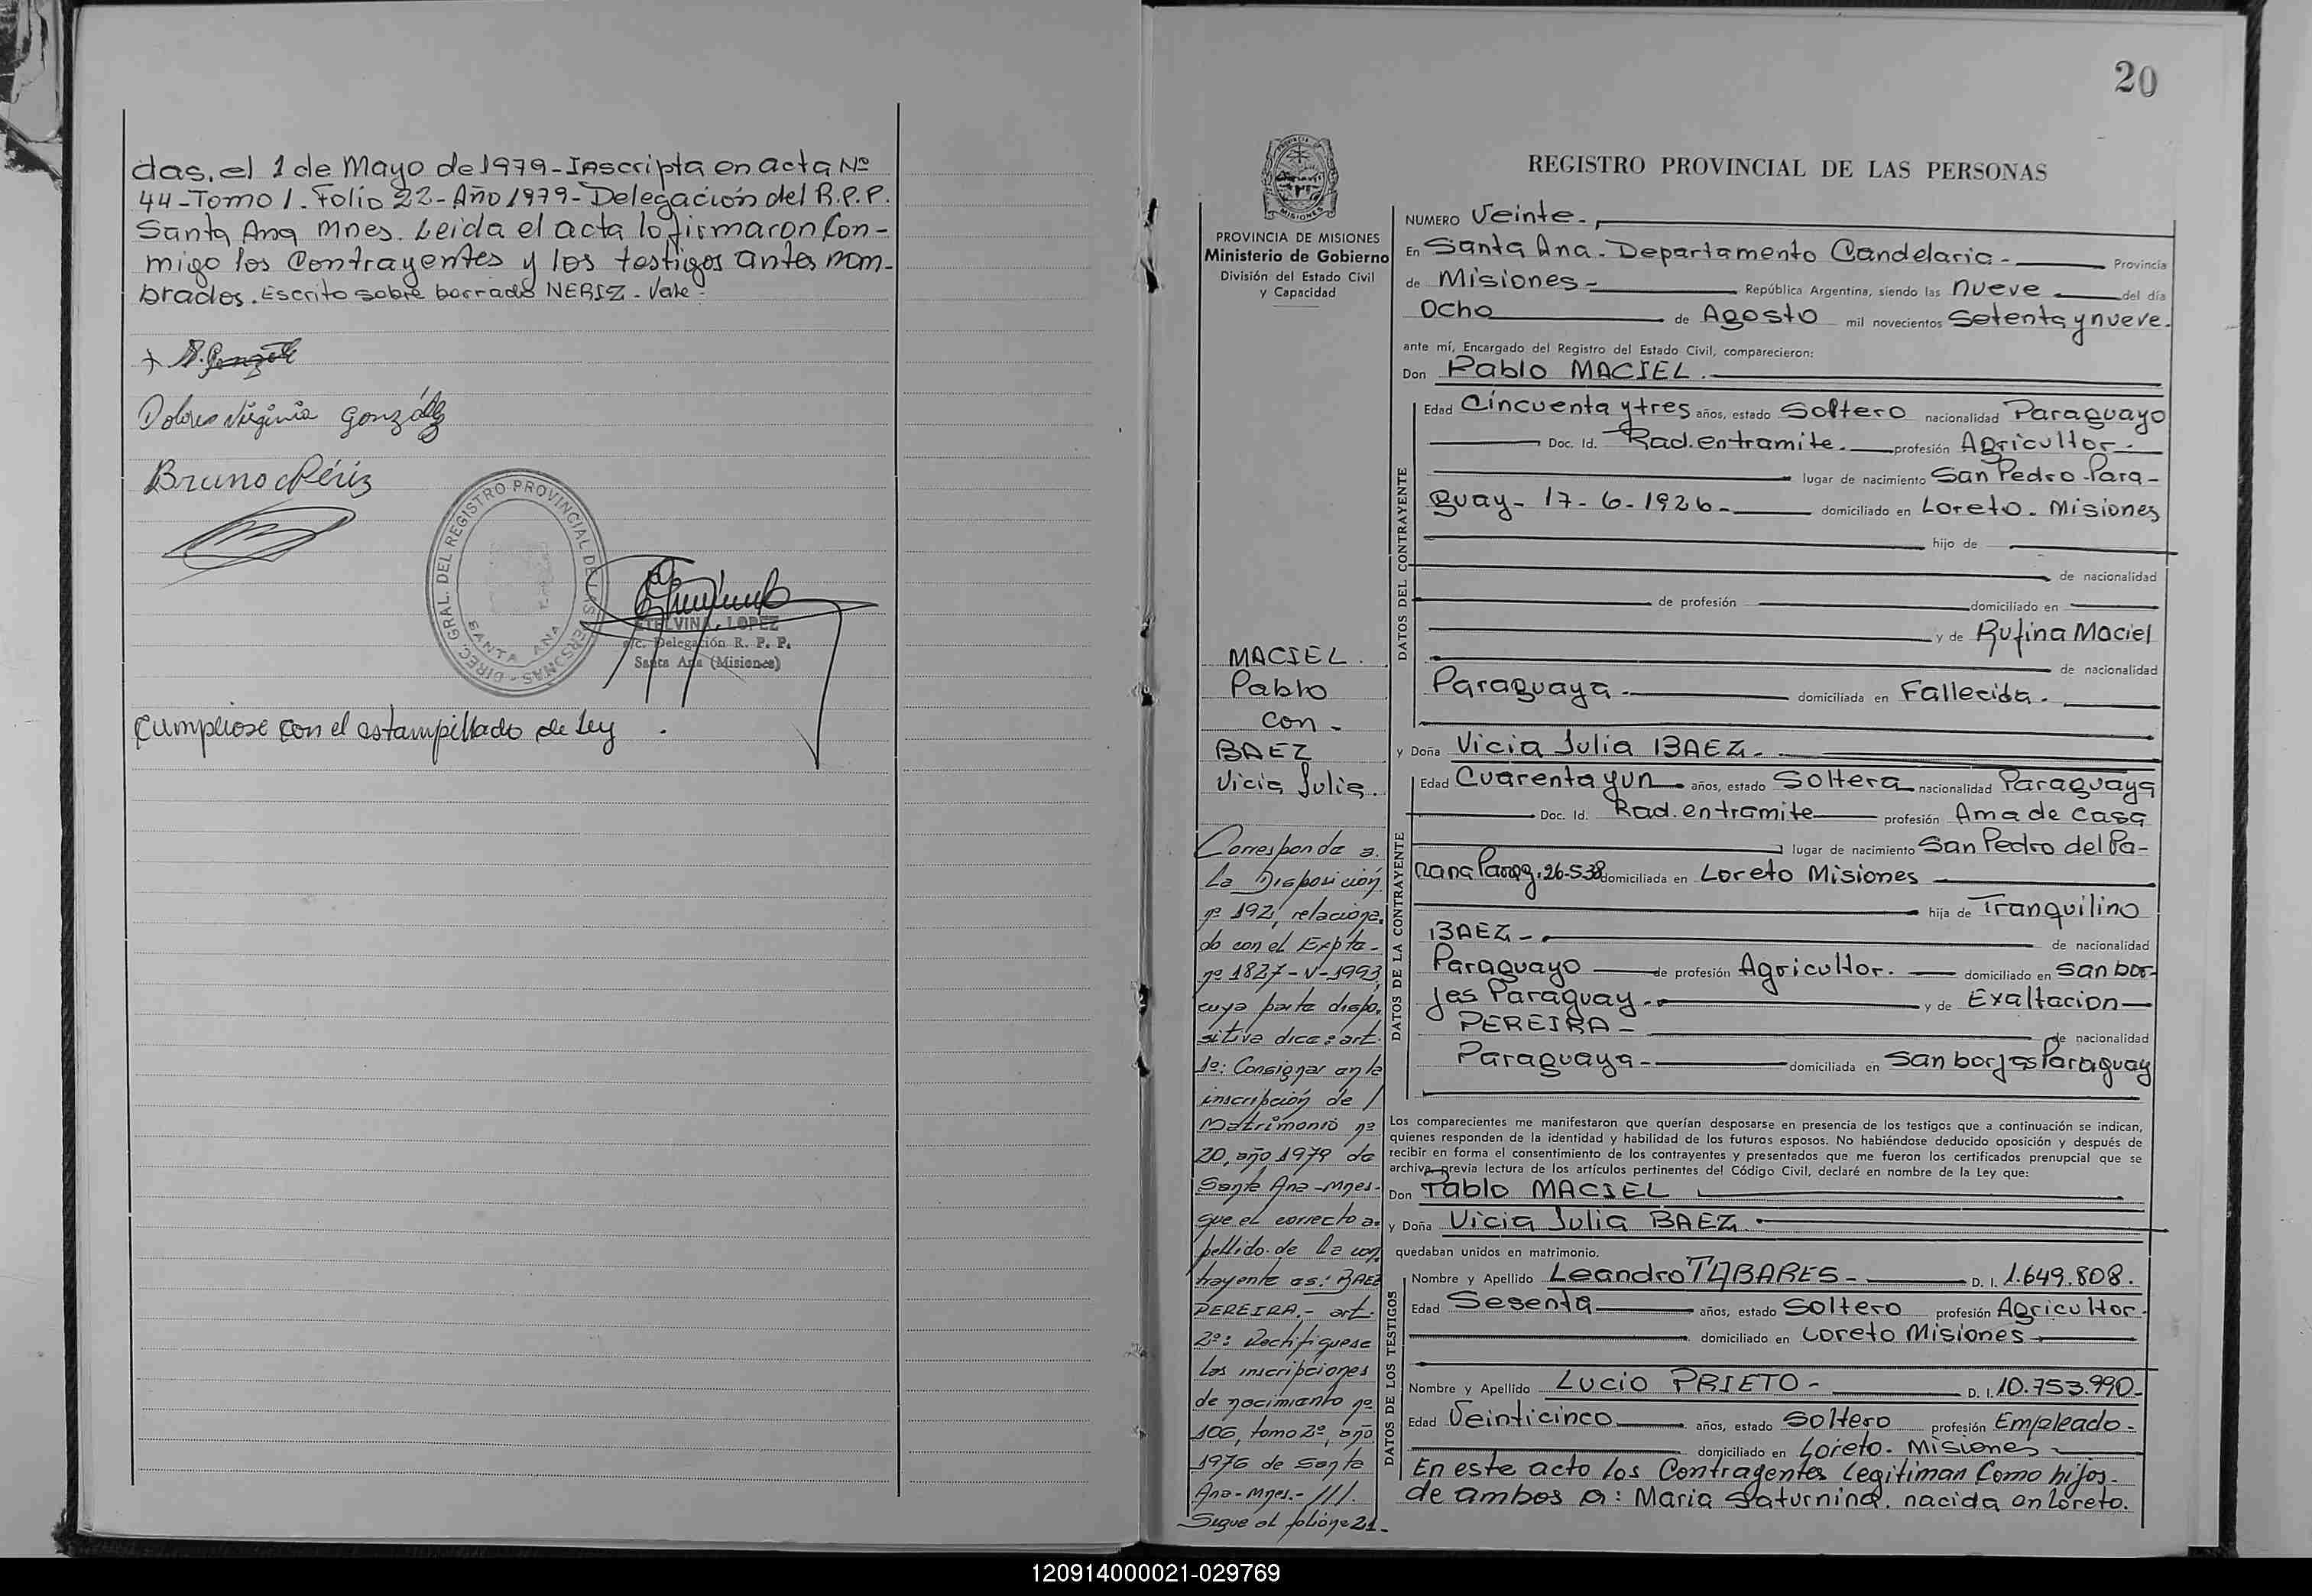 das, el 1 de Mayo de 1979-Inscripta en acta Nº
44-Tomo 1. Folio 22-Año 1979-Delegación del R.P.P.
Santa Ana Mnes. Leida el acta lo firmaron Con-
migo los Contrayentes y los testigos antes nom-
brados. Escrito sobre borrado NERIZ. Vale-
Dolores Virginia González
Bruno Nériz
DIREC. GRAL. DEL REGISTRO PROVINCIAL DE LAS PERSONAS -
SANTA ANA
ETELVINA LOPEZ
e/c. Delegación R. P. P.
Santa Ana (Misiones)
Cumpliose con el estampillado de Ley
20
PROVINCIA DE MISIONES
Ministerio de Gobierno
División del Estado Civil
y Capacidad
MACIEL.
Pablo
con-
BAEZ
Vicia Julia.
Corresponde a
La Disposición
nº 192, relaciona
do con el Expte-
nº 1827-V-1993,
cuya parte dispo-
sitiva dice: art.
1º: Consignar en la
inscripción de /
Matrimonio nº
20, año 1979 de
Santa Ana-Mnes-
que el correcto a-
pellido de la con
trayente es: BAEZ
PEREIRA.- art.
2º: Rectifiquese
las inscripciones
de nacimiento nº
106, tomo 2º, año
1976 de Santa
Ana-Mnes.-///.
Segue al folio nº 21-
REGISTRO PROVINCIAL DE LAS PERSONAS
NUMERO Veinte.-
En Santa Ana. Departamento Candelaria- Provincia
de Misiones- República Argentina, siendo las nueve del día
Ocho de Agosto mil novecientos Setenta y nueve.
ante mí, Encargado del Registro del Estado Civil, comparecieron:
Don Pablo MACIEL.
DATOS DEL CONTRAYENTE
Edad Cincuenta y tres años, estado Soltero nacionalidad Paraguayo
Doc. Id. Rad. en tramite. profesión Agricultor-
lugar de nacimiento San Pedro-Para-
guay- 17-6-1926- domiciliado en Loreto. Misiones
hijo de
de nacionalidad
de profesión domiciliado en
y de Rufina Maciel
de nacionalidad
Paraguaya- domiciliada en Fallecida.
y Doña Vicia Julia BAEZ.-
DATOS DE LA CONTRAYENTE
Edad Cuarenta y un años, estado Soltera nacionalidad Paraguaya
Doc. Id. Rad. en tramite profesión Ama de Casa
lugar de nacimiento San Pedro del Pa-
rana Parag. 26-5-38 domiciliada en Loreto Misiones
hija de Tranquilino
BAEZ- de nacionalidad
Paraguayo de profesión Agricultor. domiciliado en San bor-
jas Paraguay.- y de Exaltacion
PEREIRA- de nacionalidad
Paraguaya- domiciliada en San borjas Paraguay
Los comparecientes me manifestaron que querían desposarse en presencia de los testigos que a continuación se indican,
quienes responden de la identidad y habilidad de los futuros esposos. No habiéndose deducido oposición y después de
recibir en forma el consentimiento de los contrayentes y presentados que me fueron los certificados prenupcial que se
archiva, previa lectura de los artículos pertinentes del Código Civil, declaré en nombre de la Ley que:
Don Pablo MACIEL
y Doña Vicia Julia BAEZ.
quedaban unidos en matrimonio.
DATOS DE LOS TESTIGOS
Nombre y Apellido Leandro TABARES- D. I. 1.649.808.
Edad Sesenta años, estado Soltero profesión Agricultor-
domiciliado en Loreto Misiones
Nombre y Apellido Lucio PRIETO- D. I. 10.753.990-
Edad Veinticinco años, estado Soltero profesión Empleado-
domiciliado en Loreto. Misiones
En este acto los Contragentes legitiman Como hijos-
de ambos a: Maria Saturnina. nacida en Loreto.
120914000021-029769